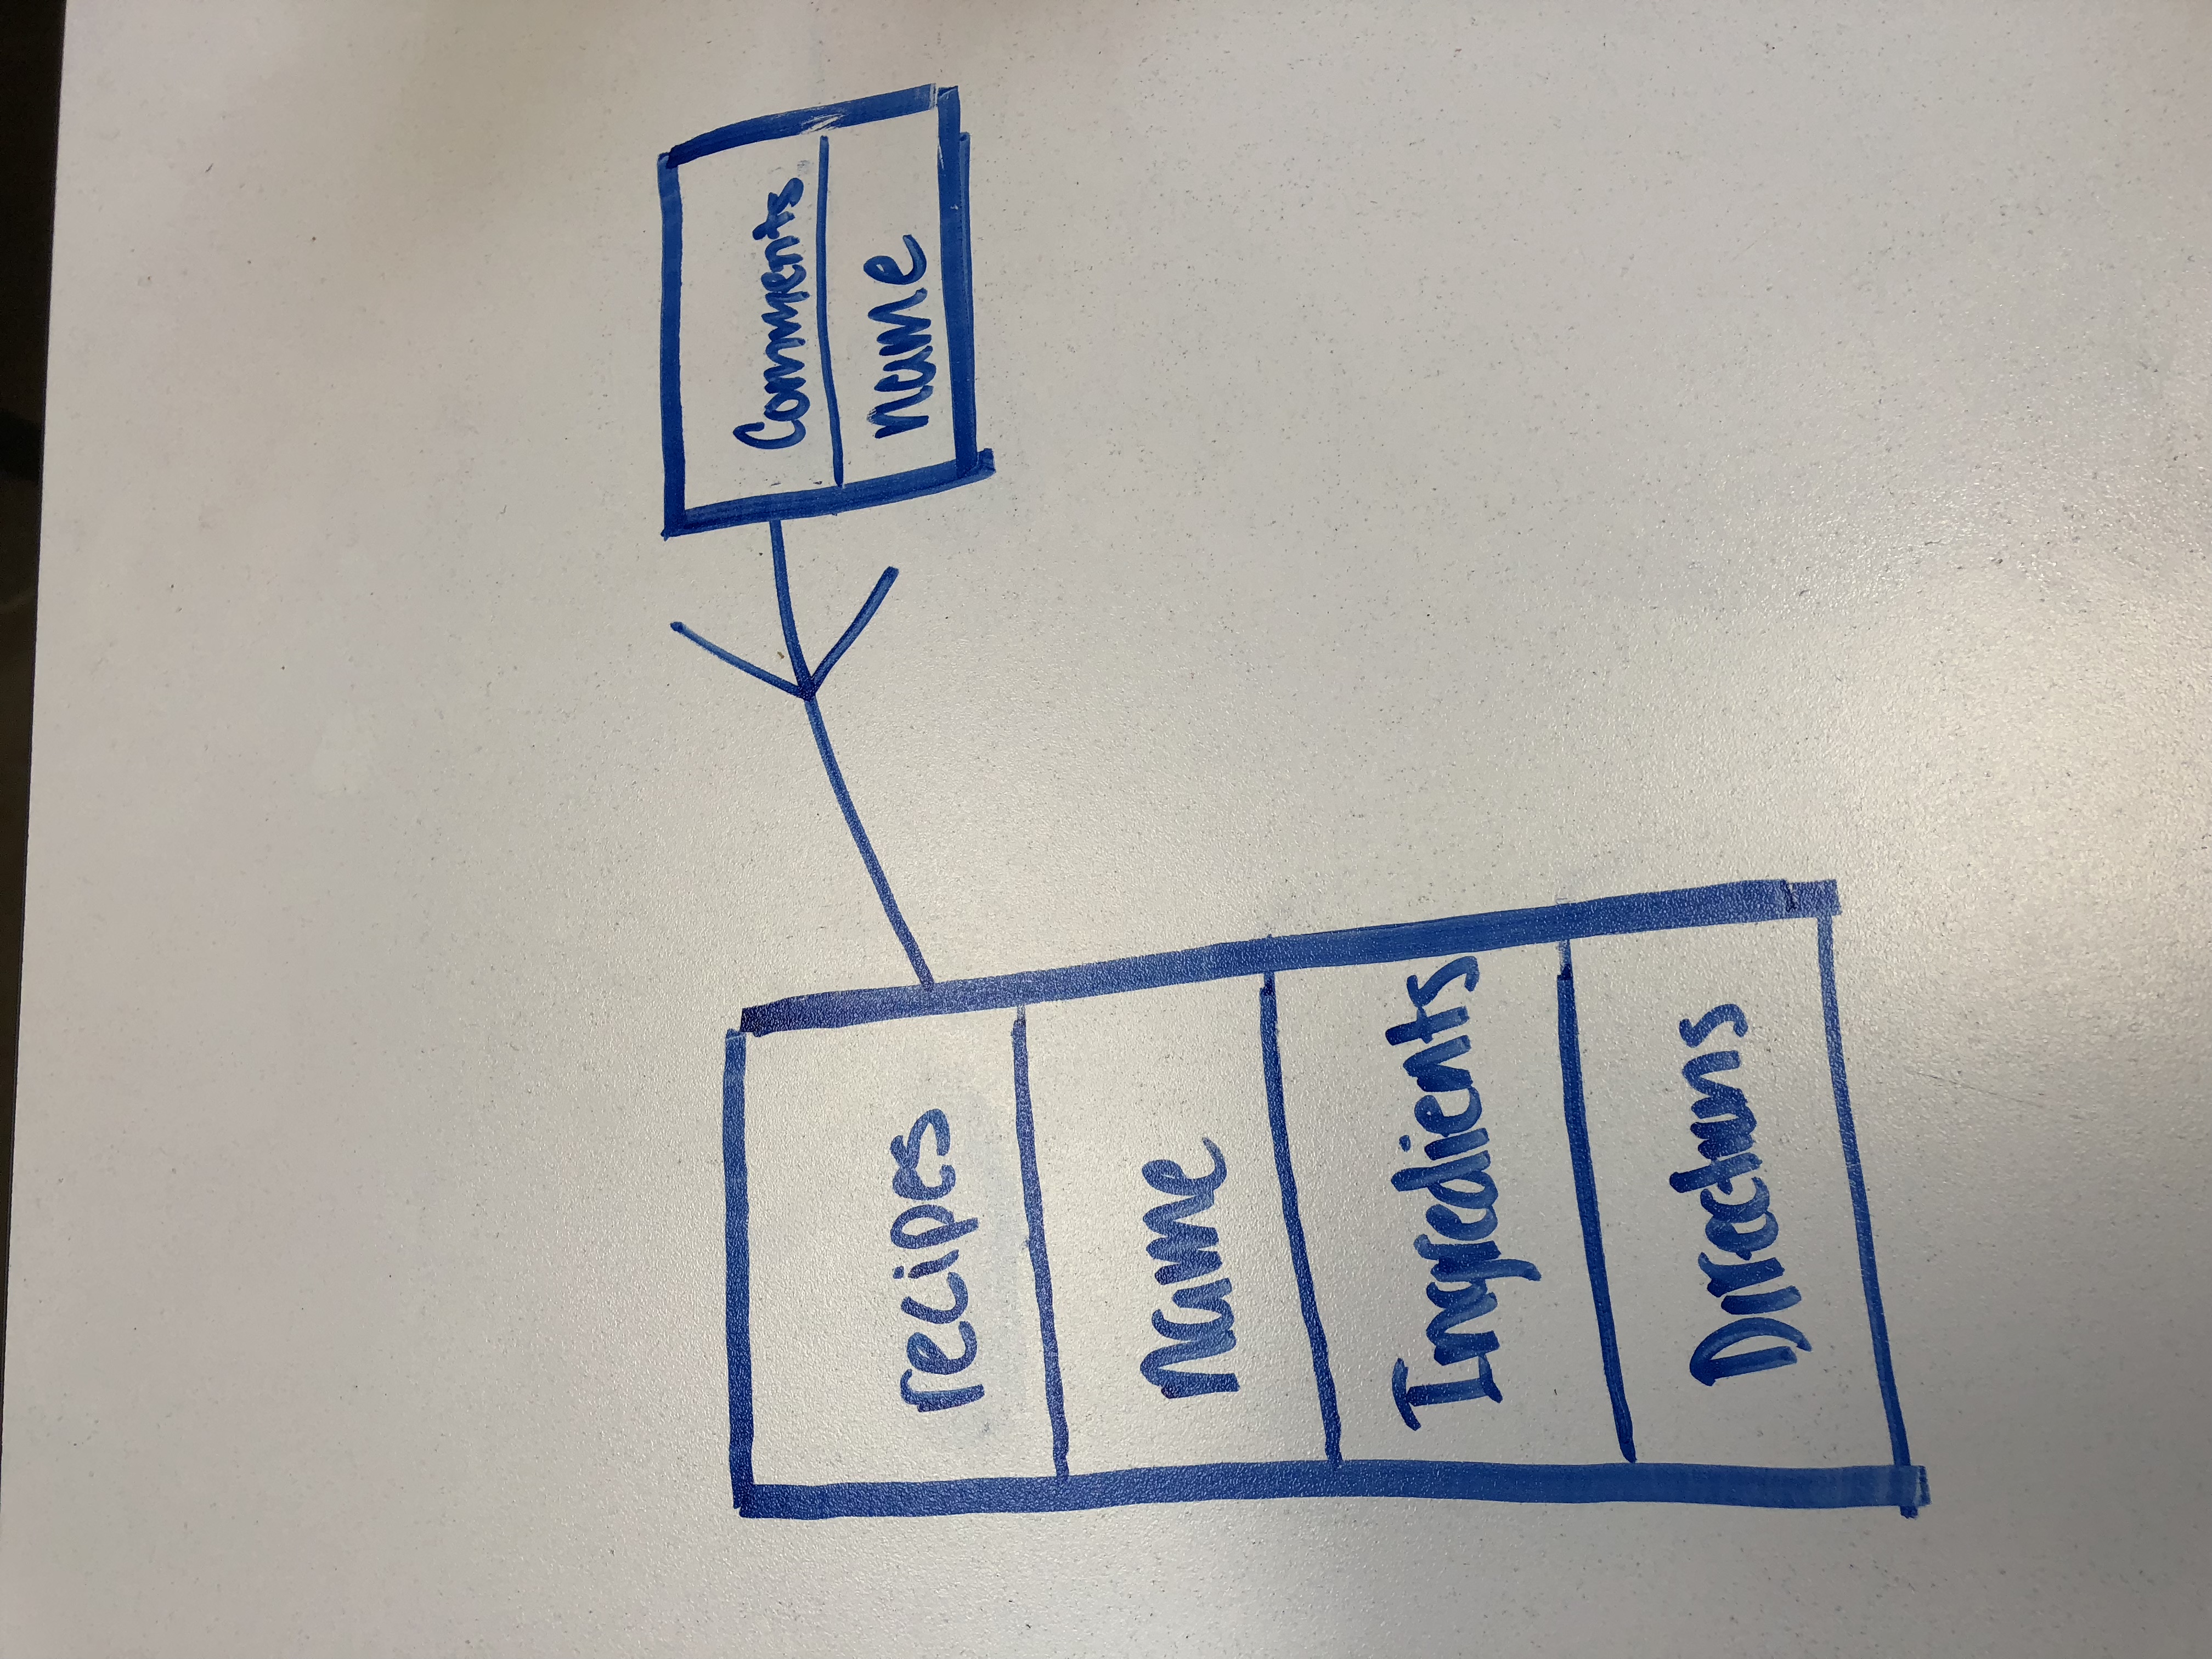 recipes
name
Ingredients
Directions
Comments
name